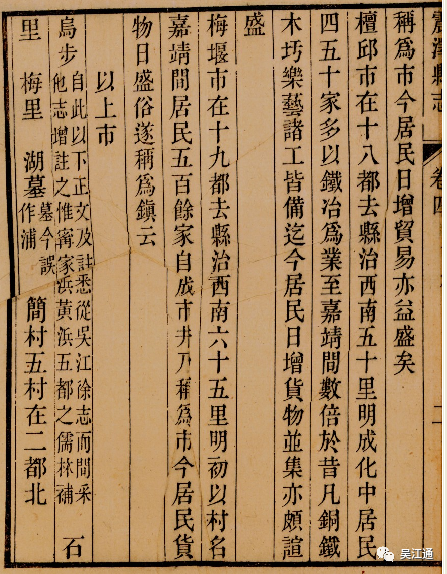 震澤縣志
卷四
二
稱爲市今居民日增貿易亦益盛矣
檀邱市在十八都去縣治西南五十里明成化中居民
四五十家多以鐵冶爲業至嘉靖間數倍於昔凡銅鐵
木圬樂藝諸工皆備迄今居民日增貨物並集亦頗諠
盛
梅堰市在十九都去縣治西南六十五里明初以村名
嘉靖間居民五百餘家自成市井乃稱爲市今居民貨
物日盛俗遂稱爲鎮云
以上市
烏步
自此以下正文及註悉從吳江徐志而間采
他志增註之惟寗家浜黃浜五都之儒林補
石
里 梅里 湖墓
墓今誤
作浦
簡村五村在二都北
吴江通